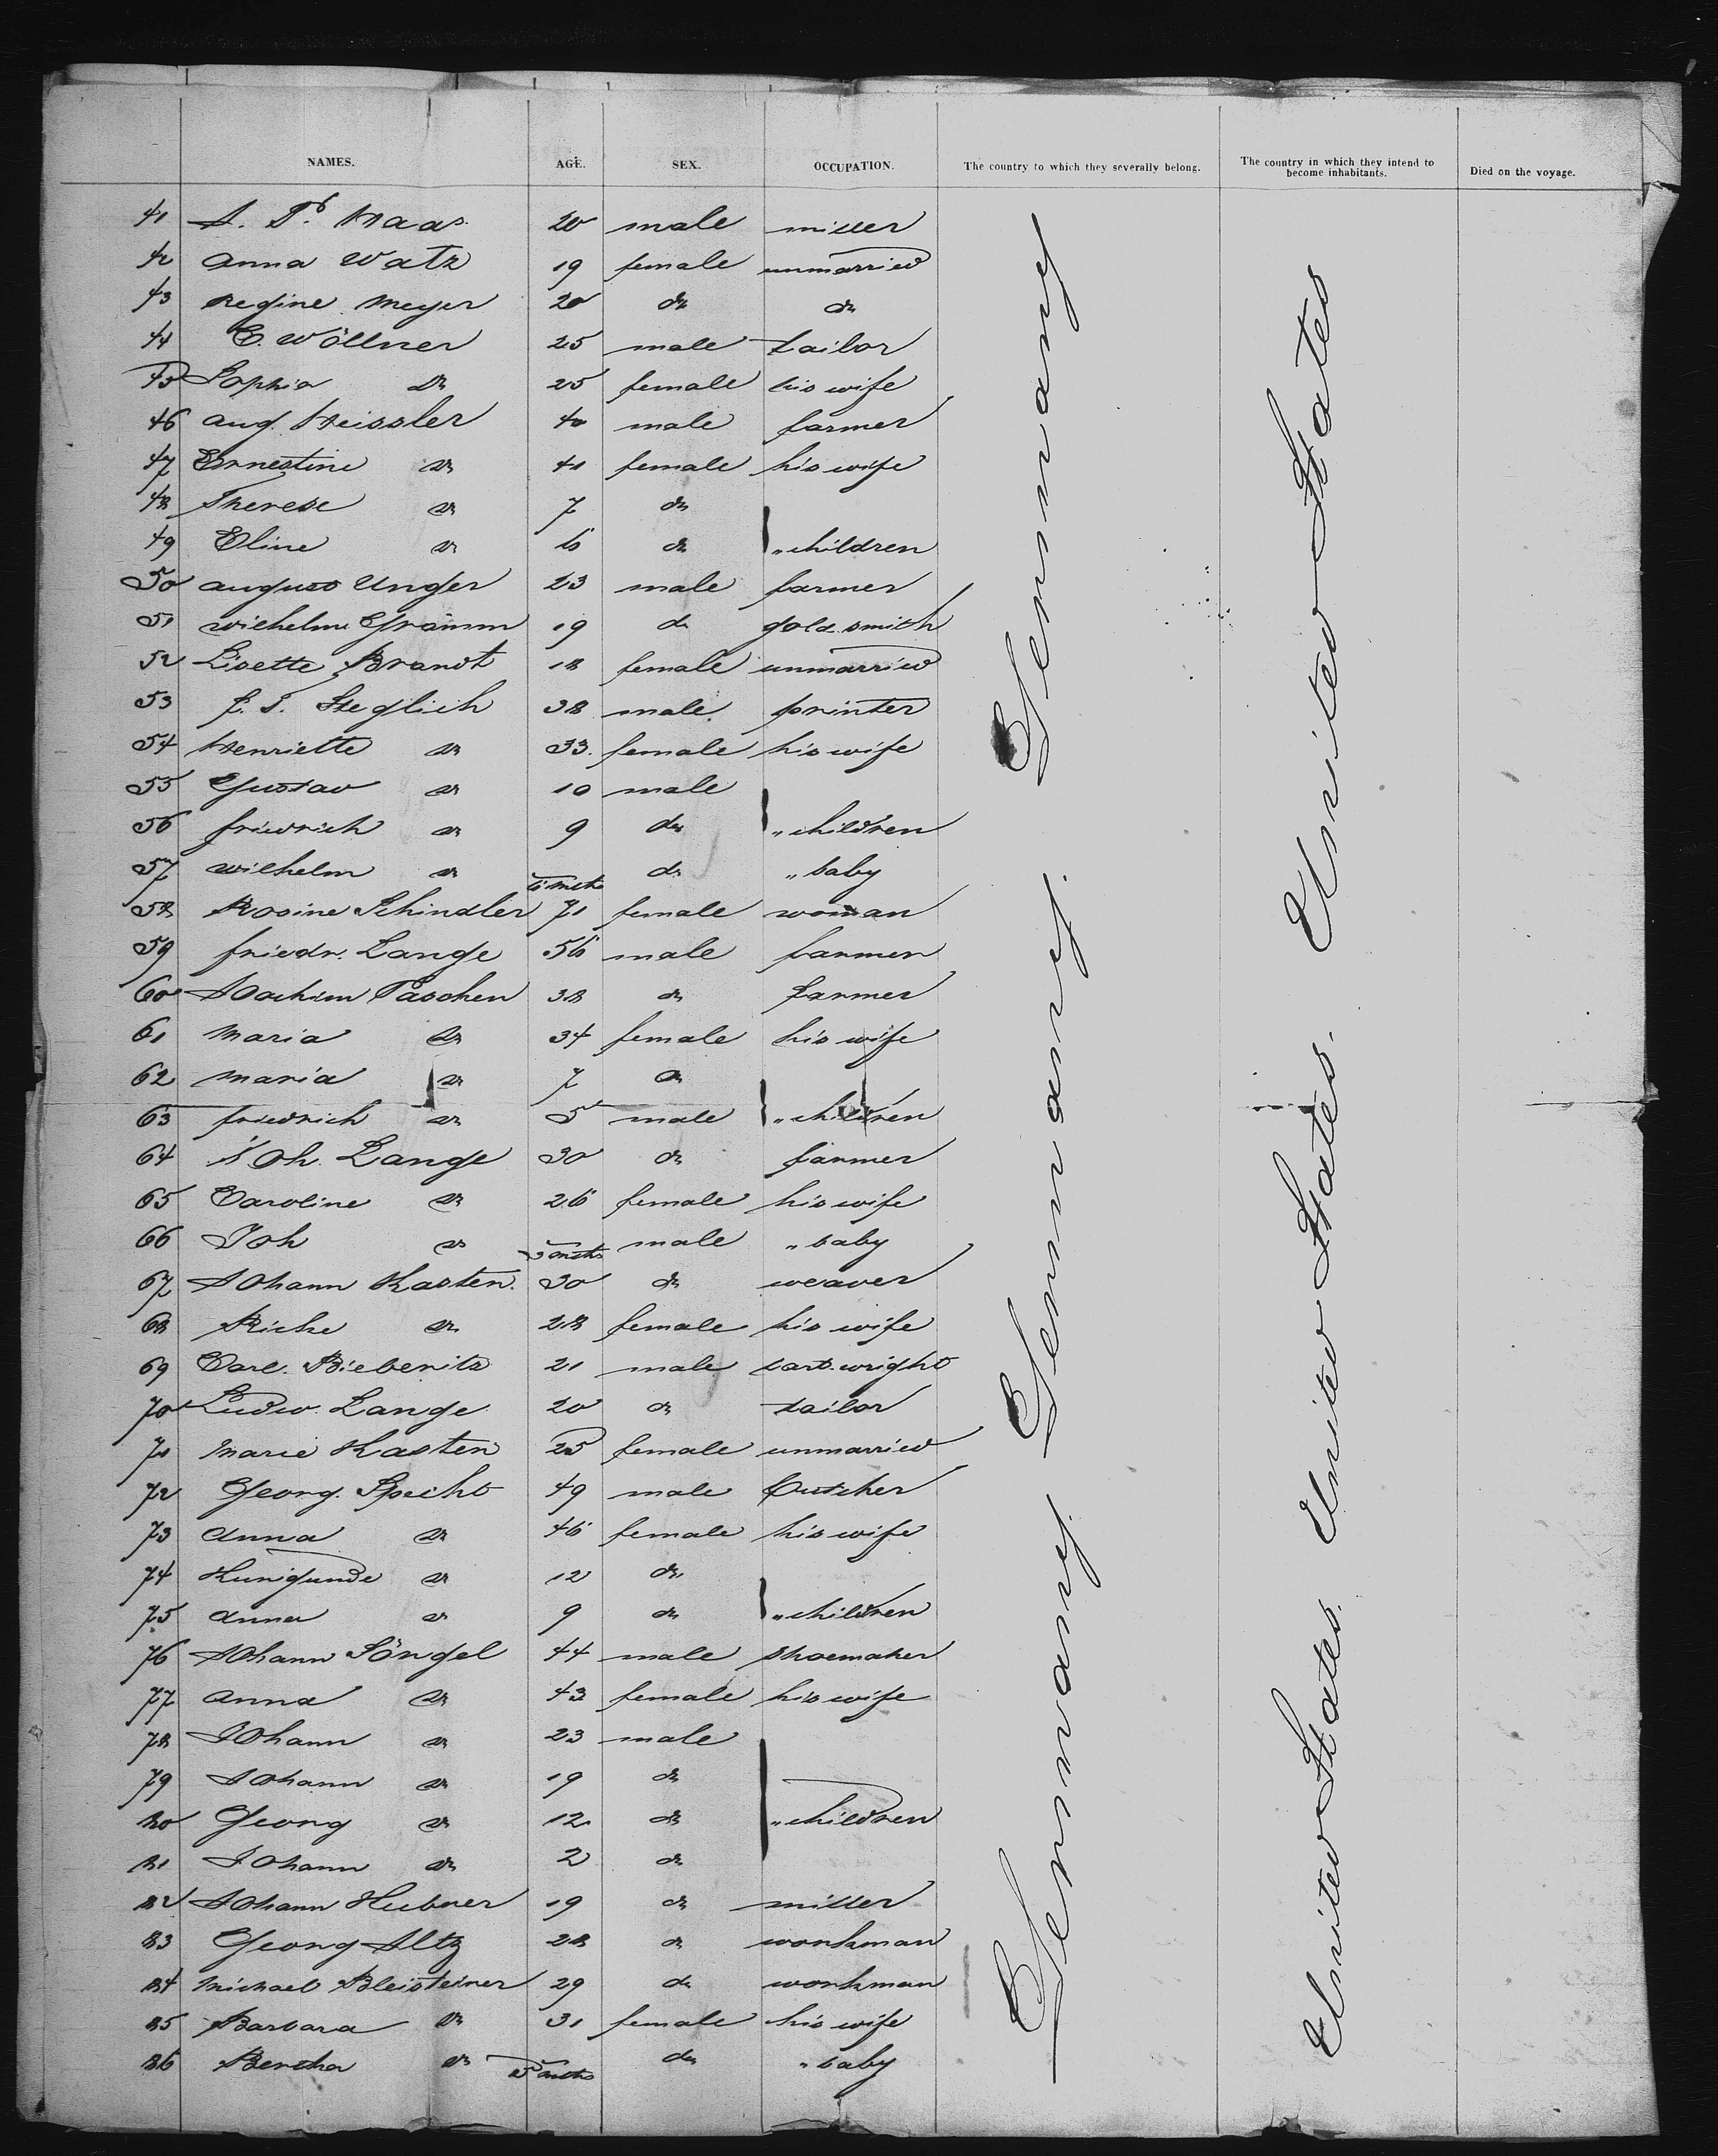 NAMES. AGE. SEX. OCCUPATION. The country to which they severally belong. The country in which they intend to become inhabitants. Died on the voyage.
41 Haas 20 male miller
42 Anna Watz 19 female unmarried
43 Regine Meyer 20 do do
44 E. Wöllner 25 male tailor
45 Sophia do 25 female his wife
46 Aug. Heissler 40 male farmer
47 Ernestine do 41 female his wife
48 Therese do 7 do
49 Eline do 6 do " children
50 August Unger 23 male farmer
51 Wilhelm Gramm 19 do goldsmith
52 Lisette Brandt 18 female unmarried
53 Steglich 38 male printer
54 Henriette do 33 female his wife
55 Gustav do 10 male
56 Friedrich do 9 do " children
57 Wilhelm do 6 mth do " baby
58 Rosine Schindler 71 female woman
59 Friedr. Lange 56 male farmer
60 Joachim Paschen 38 do farmer
61 Maria do 34 female his wife
62 Maria do 7 do
63 Friedrich do 5 male " children
64 Joh. Lange 30 do farmer
65 Caroline do 26 female his wife
66 Joh do 3 mths male " baby
67 Johann Kasten. 30 do weaver
68 Rieke do 28 female his wife
69 Carl. Bieberitz 21 male cartwright
70 Ludw. Lange 20 do tailor
71 Marie Kasten 25 female unmarried
72 Georg. Specht 49 male butcher
73 Anna do 46 female his wife
74 Kunigunde do 12 do
75 Anna do 9 do " children
76 Johann Söngel 44 male shoemaker
77 Anna do 43 female his wife
78 Johann do 23 male
79 Johann do 19 do
80 Georg do 12 do " children
81 Johann do 2 do
82 Johann Hubner 19 do miller
83 Georg Altz 28 do workman
84 Michael Bleisteiner 29 do workman
85 Barbara do 31 female his wife
86 Bertha do mths do " baby
Germany. Germany. Germany
United States. United States. United States